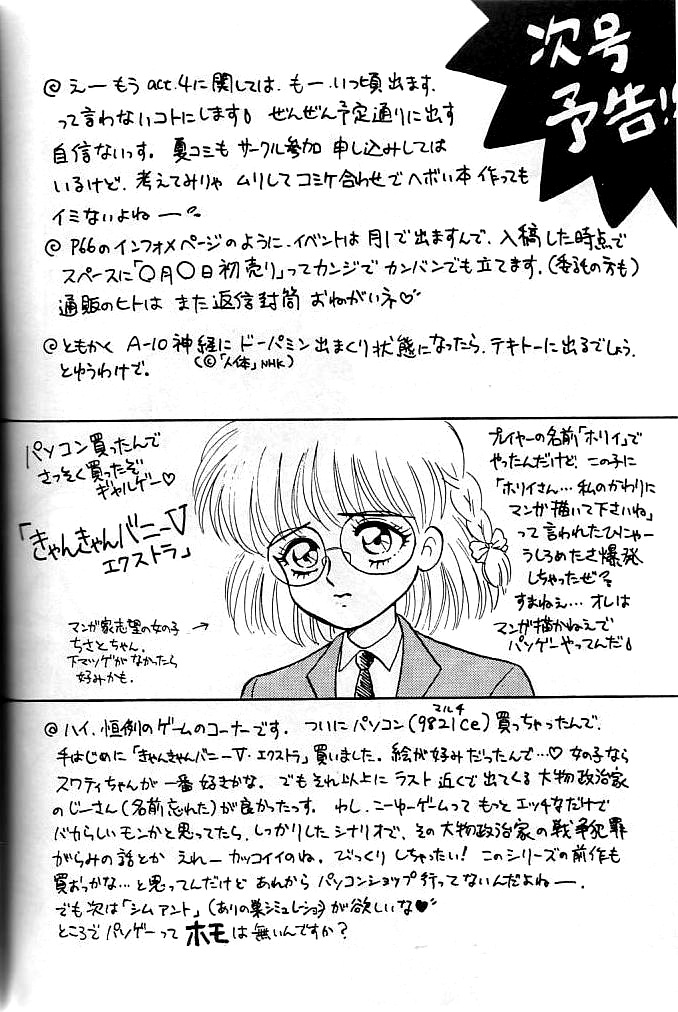 次号
予告!!
@ えー もう act.4に関しては、もー、いつ頃出ます、
って言わないコトにします。ぜんぜん予定通りに出す
自信ないっす。夏コミも サークル参加 申し込みしては
いるけど、考えてみりゃ ムリしてコミケ合わせでヘボい本 作っても
イミないよねー。
@ P66のインフォメページのように、イベントは 月1で出ますんで、入稿した時点で
スペースに「○月○日初売り」ってカンジで カンバンでも立てます。(委託の方も)
通販のヒトは また返信封筒 おねがいネ♡
@ともかく A-10神経に ドーパミン出まくり状態になったら、テキトーに出るでしょう。
(©「人体」NHK)
とゆうわけで。
パソコン買ったんで
さっそく買ったぞ
ギャルゲー♡
「きゃんきゃんバニーⅤ
エクストラ」
マンガ家志望の女の子 →
ちさとちゃん。
下マツゲがなかったら
好みかも。
プレイヤーの名前「ホリイ」で
やったんだけど、この子に
「ホリイさん…私のかわりに
マンガ描いて下さいね」
って言われたひにゃー
うしろめたさ爆発
しちゃったぜ?
すまねえ…オレは
マンガ描かねえで
パソゲーやってんだ!
@ハイ、恒例のゲームのコーナーです。 ついに パソコン(9821Ce)買っちゃったんで、
マルチ
手はじめに「きゃんきゃんバニーⅤ・エクストラ」買いました。絵が好みだったんで…♡ 女の子なら
スワティちゃんが 一番 好きかな。 でも それ以上に ラスト 近くで出てくる 大物政治家
のじーさん(名前忘れた)が良かったっす。 わし、こーゆーゲームって もっと エッチなだけで
バカらしいモンかと思ってたら、しっかりしたシナリオで、その大物政治家の戦争犯罪
がらみの話とか えれー カッコイイのね。 びっくり しちゃったい! このシリーズの前作も
買おっかな…と思ってんだけど あれから パソコンショップ 行ってないんだよねー。
でも次は「シムアント」(ありの巣シミュレーション)が欲しいな♥
ところで パソゲーって ホモ は無いんですか?